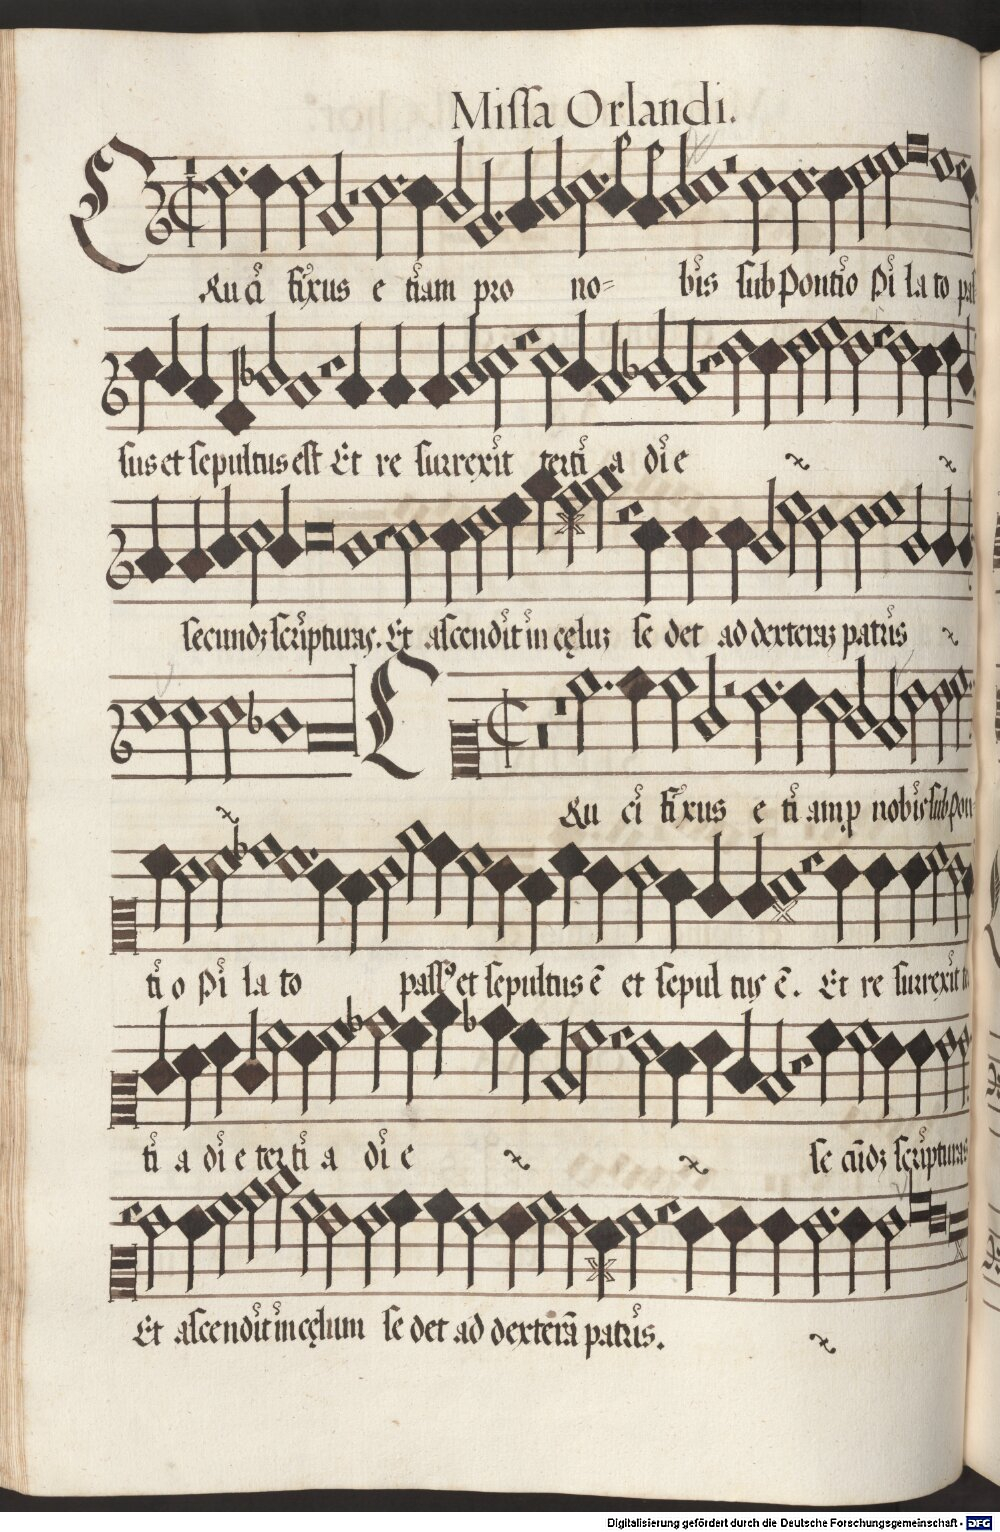 Missa Orlandi.
Cru ci fixus e tiam pro no= bis sub Pontio Pi la to pas
sus et sepultus est Et re surrexit terti a di e
secundz scripturas. Et ascendit in cęluz se det ad dexteraz patris
Cru ci fixus e ti am p nobis sub Pon
ti o Pi la to pass9 et sepultus ē et sepul tus ē. Et re surrexit t
ti a di e ter ti a di e se cūdz scripturas
Et ascendit in cęlum se det ad dexterā patris.
Digitalisierung gefördert durch die Deutsche Forschungsgemeinschaft - DFG